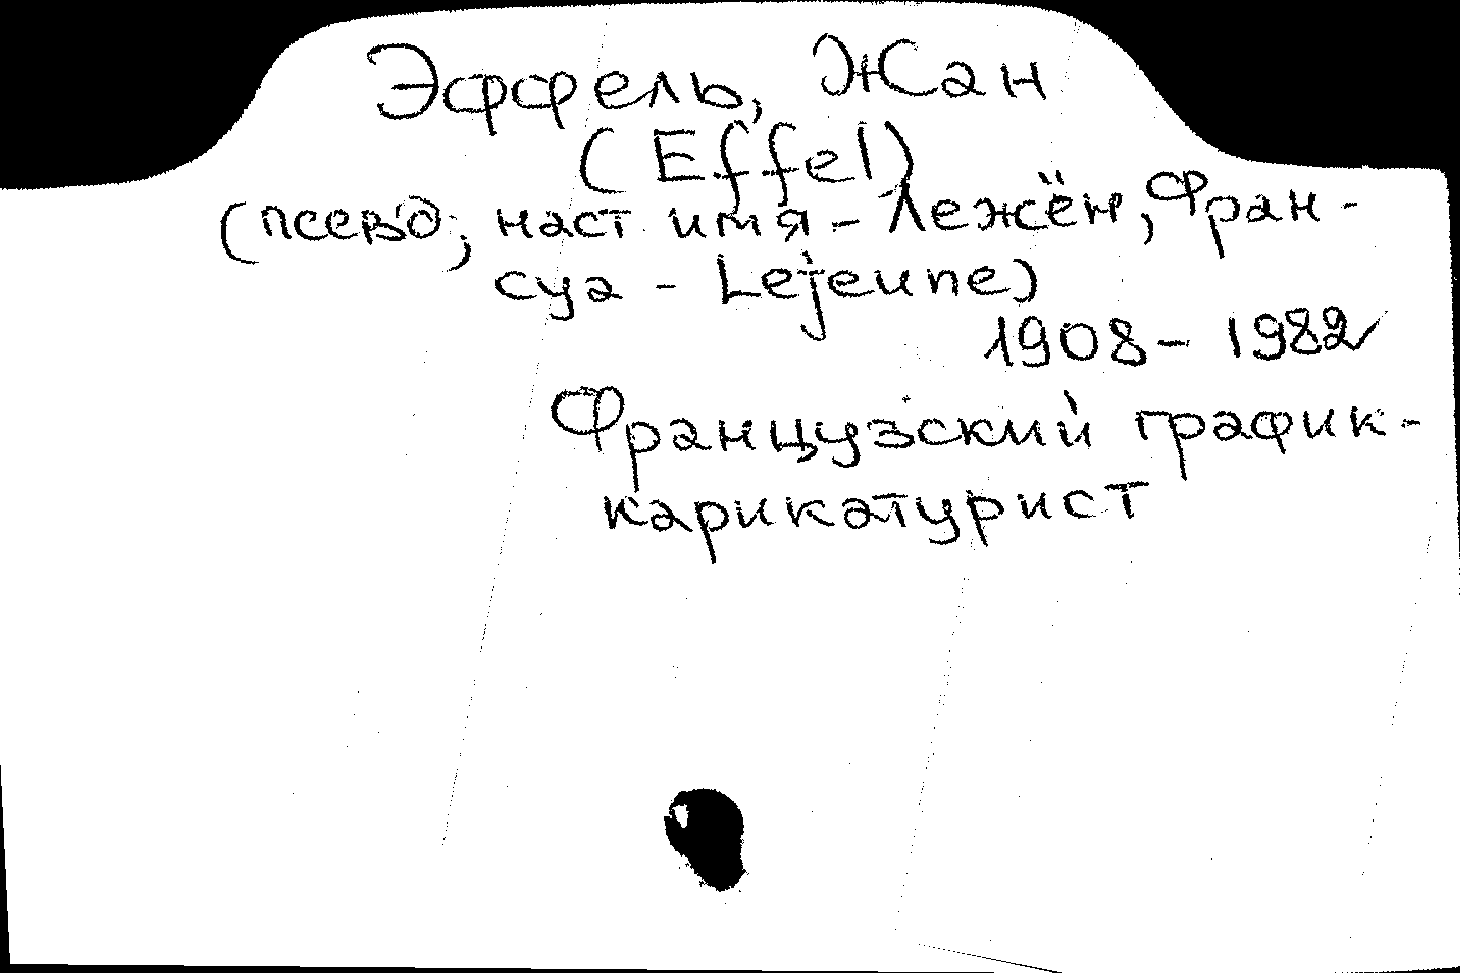 Эффель, Жан
(Effel)
(псевд; наст имя - Лежён, Фран-
суа - Lejeune)
1908 - 1982
Французский график-
карикатурист